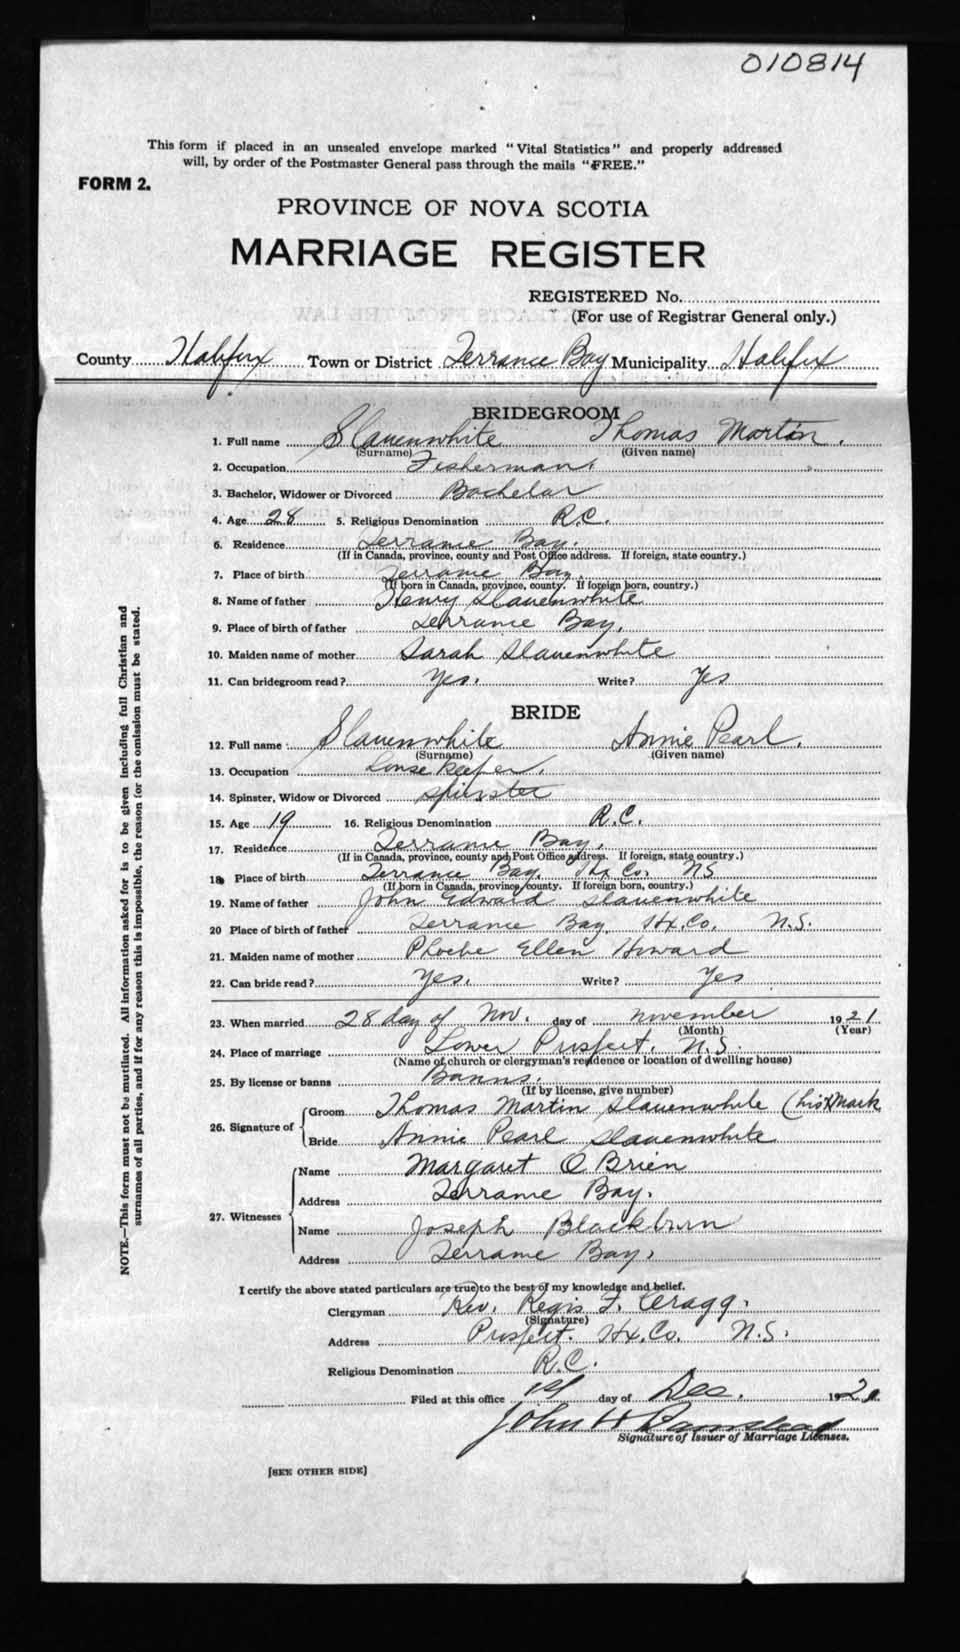 010814
This form if placed in an unsealed envelope marked "Vital Statistics" and properly addressed
will, by order of the Postmaster General pass through the mails "FREE."
FORM 2.
PROVINCE OF NOVA SCOTIA
MARRIAGE REGISTER
REGISTERED No.
(For use of Registrar General only.)
County Halifax Town or District Terrance Bay Municipality Halifax
BRIDEGROOM
1. Full name Slauenwhite Thomas Martin.
(Surname) (Given name)
2. Occupation Fisherman.
3. Bachelor, Widower or Divorced Bachelor
4. Age 28 5. Religious Denomination R.C.
6. Residence Terrance Bay.
(If in Canada, province, county and Post Office address. If foreign, state country.)
7. Place of birth Terrance Bay
(If born in Canada, province, county. If foreign born, country.)
8. Name of father Henry Slauenwhite
9. Place of birth of father Terrance Bay.
10. Maiden name of mother Sarah Slauenwhite
11. Can bridegroom read? Yes. Write? Yes
BRIDE
12. Full name Slauenwhite Annie Pearl.
(Surname) (Given name)
13. Occupation House keeper.
14. Spinster, Widow or Divorced spinster
15. Age 19 16. Religious Denomination R.C.
17. Residence Terrance Bay.
(If in Canada, province, county and Post Office address. If foreign, state country.)
18 Place of birth Terrance Bay. Hx Co. NS
(If born in Canada, province, county. If foreign born, country.)
19. Name of father John Edward Slauenwhite
20 Place of birth of father Terrance Bay Hx. Co. N.S.
21. Maiden name of mother Phoebe Ellen Howard
22. Can bride read? Yes. Write? Yes
23. When married 28 day of Nov. day of November 1921
(Month) (Year)
24. Place of marriage Lower Prospect, N.S.
(Name of church or clergyman's residence or location of dwelling house)
25. By license or banns Banns.
(If by license, give number)
26. Signature of Groom Thomas Martin Slauenwhite (his X Mark
Bride Annie Pearl Slauenwhite
27. Witnesses Name Margaret O Brien
Address Terrance Bay.
Name Joseph Blackburn
Address Terrance Bay.
I certify the above stated particulars are true to the best of my knowledge and belief.
Clergyman Rev. Regis F. Cragg.
(Signature)
Address Prospect. Hx. Co. N.S.
Religious Denomination R.C.
Filed at this office 1st day of Dec. 192
John H
Signature of Issuer of Marriage Licenses.
[SEE OTHER SIDE]
NOTE.—This form must not be mutilated. All information asked for is to be given including full Christian and
surnames of all parties, and if for any reason this is impossible, the reason for the omission must be stated.